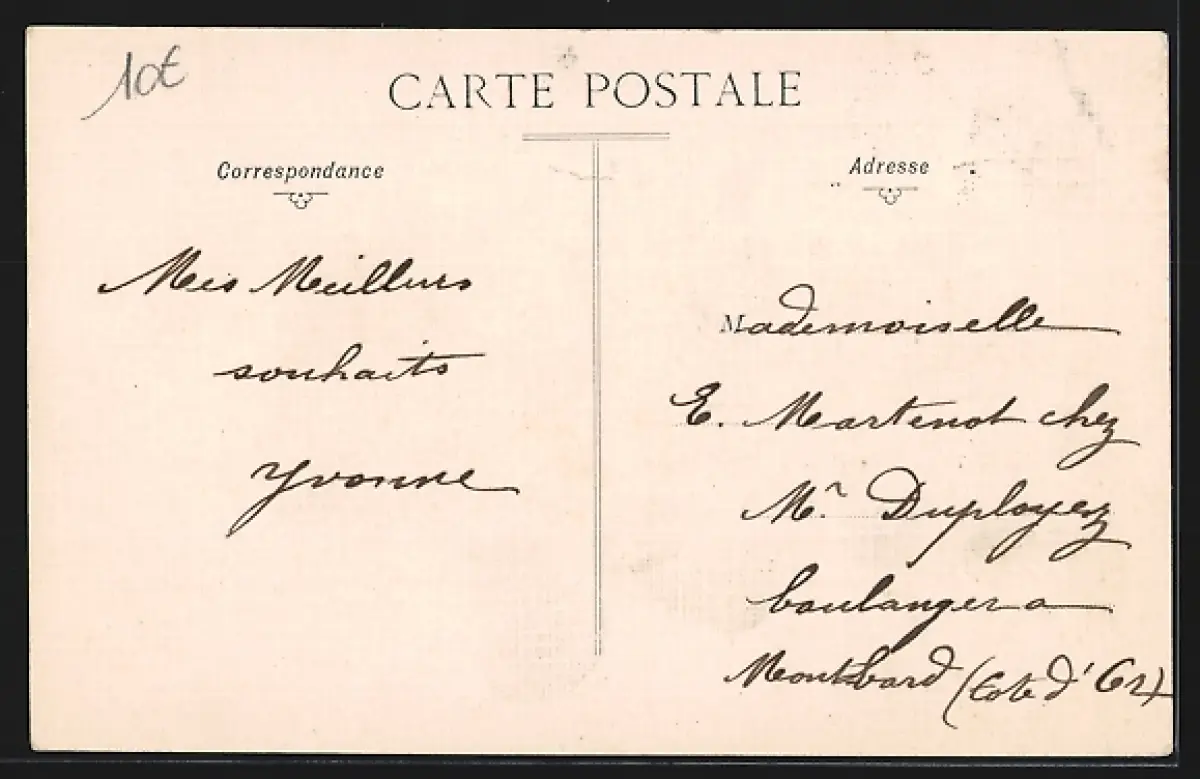 10€
CARTE POSTALE
Correspondance
Mes Meilleurs
souhaits
Yvonne
Adresse
Mademoiselle
E. Martinot chez
Mr. Duployez
boulanger a
Montbard (Cote d'Or)